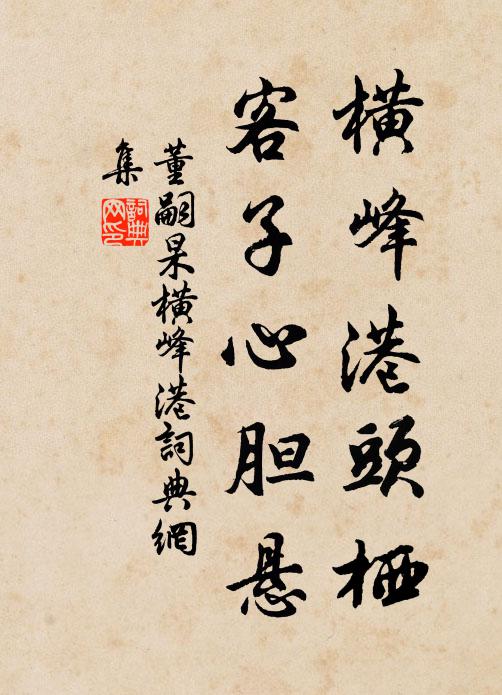 横峰港頭栖
客子心胆悬
董嗣杲横峰港詞典網
集
詞典
网印